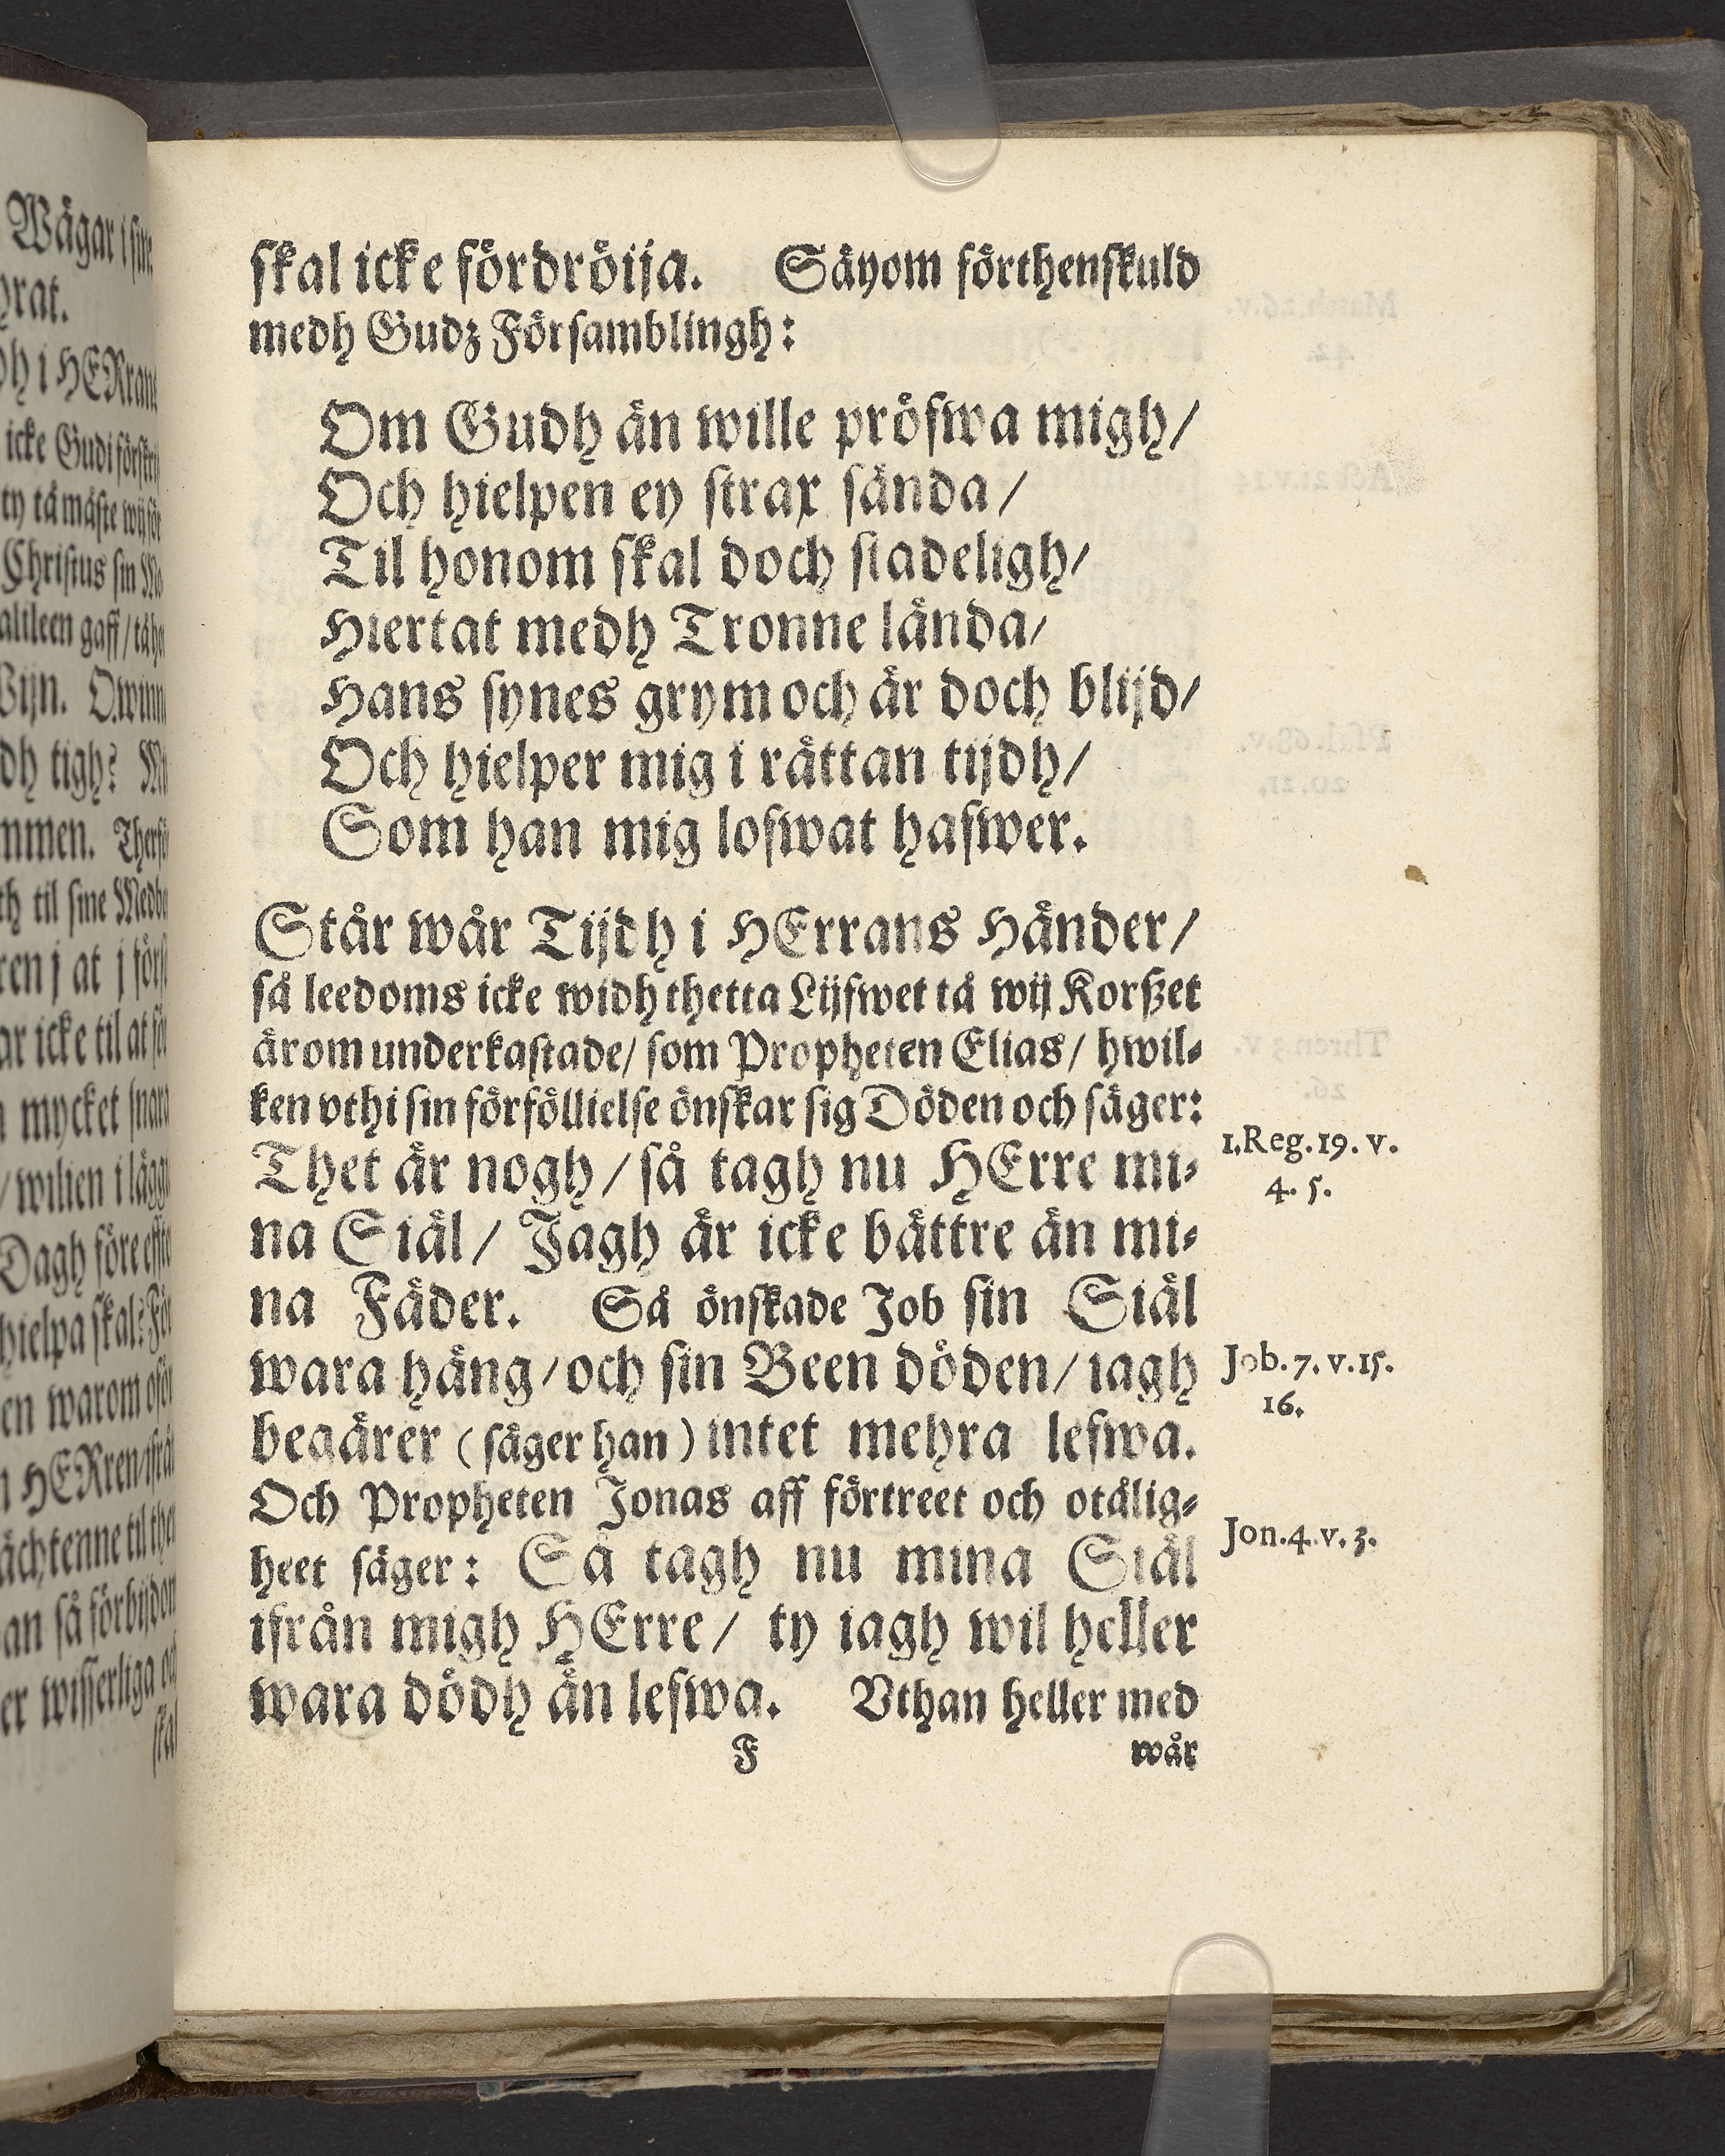 skal icke fördröija. Säyom förthenskuld
medh Gudz Församblingh:
Om Gudh än wille pröfwa migh/
Och hielpen ey strax sända/
Til honom skal doch stadeligh/
Hiertat medh Tronne lända/
Hans synes grym och är doch blijd/
Och hielper mig i rättan tijdh/
Som han mig lofwat hafwer.
Står wår Tijdh i HErrans Händer/
så leedoms icke widh thetta Lijfwet tå wij Korßet
ärom underkastade/ som Propheten Elias/ hwil-
ken vthi sin förföllielse önskar sig Döden och säger:
Thet är nogh/ så tagh nu HErre mi-
na Siäl/ Jagh är icke bättre än mi-
na Fäder. Så önskade Job sin Siäl
wara häng/ och sin Been döden/ iagh
begärer (säger han) intet mehra lefwa.
Och Propheten Jonas aff förtreet och otålig-
heet säger: Så tagh nu mina Siäl
ifrån migh HErre/ ty iagh wil heller
wara dödh än lefwa. Vthan heller med
F wår
1.Reg.19. v.
4. 5.
Job. 7. v.15.
16.
Jon.4.v.3.
Wägar i sine
icke Gudi
ty tå måste
Christus sin
altleen gaff/ tå
dh tigh?
th til sine
ren j at j
ar icke til at
mycket snara
/ wilien i
Dagh före
hielpa skal:
en warom
HERren/
til then
an så
er wisserliga
skal